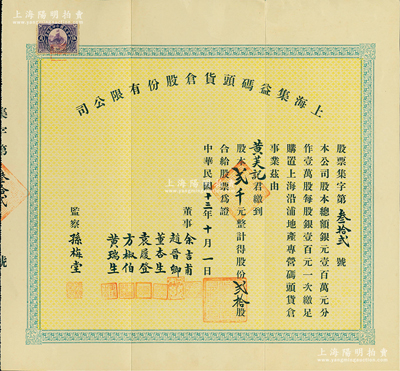 上海陽明拍賣
上海集益碼頭貨倉股份有限公司
股票集字第叁拾弍號
本公司股本總額銀元壹百萬元分
作壹萬股每股銀壹百元一次繳足
購置上海沿浦地產專營碼頭貨倉
事業茲由
黃芙記君繳到
股本弍千元整計得股份弍拾股
合給股票爲證
中華民國十三年十月一日
董事
余吉甫
趙晉卿
董杏生
袁履登
方椒伯
黃瑞生
監察
孫梅堂
集字第叁拾弍號
上海陽明拍賣